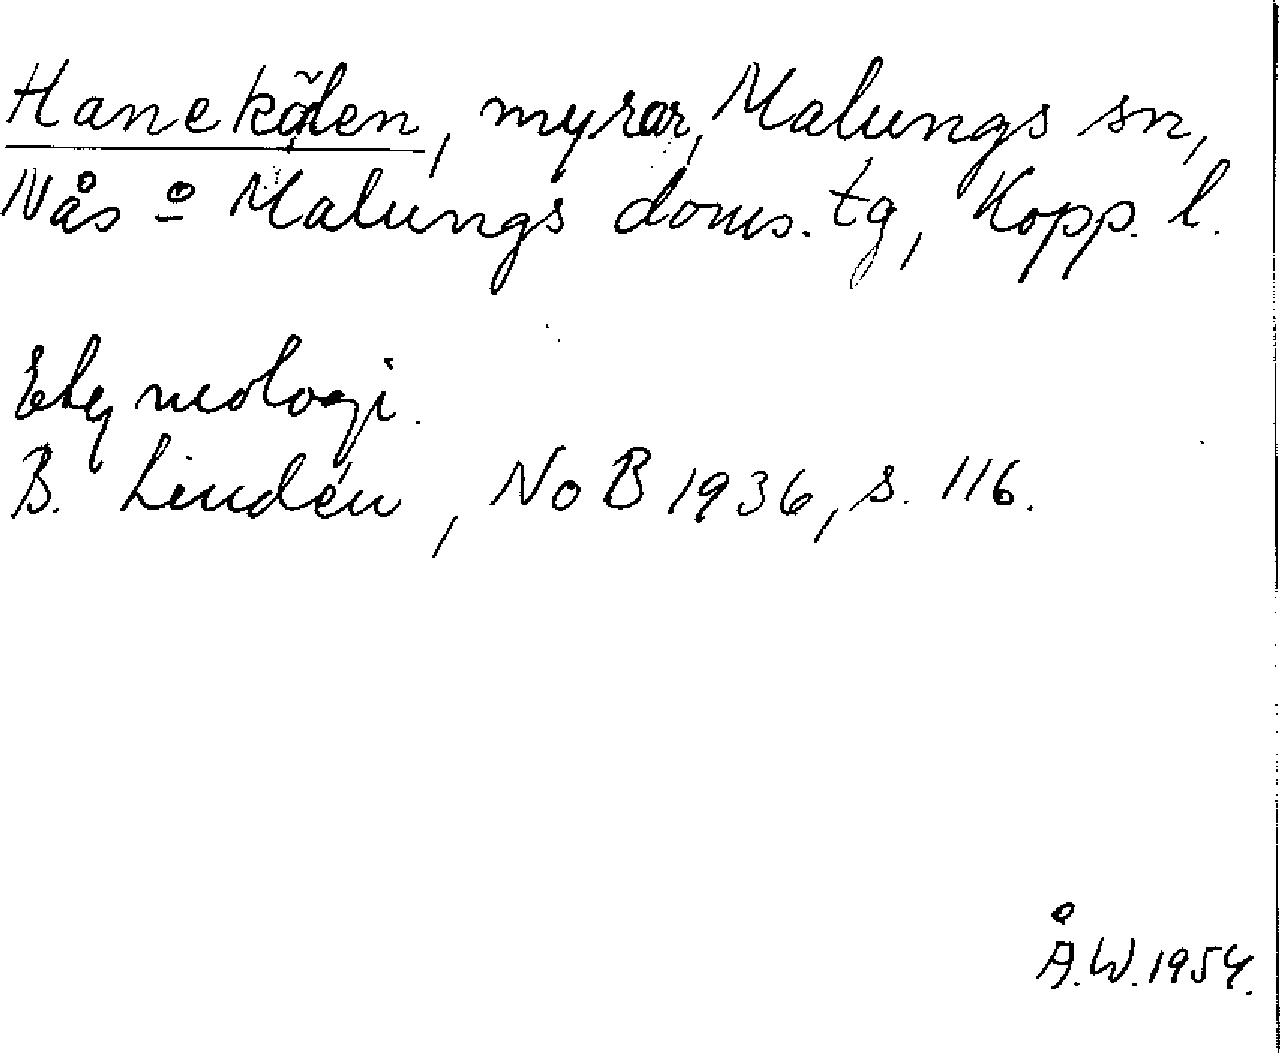 Hanekølen, myrar, Malungs sn,
Nås o Malungs doms. tg, Kopp. l.
Etymologi.
B. Lindén, NoB 1936, s. 116.
Å.W. 1954.